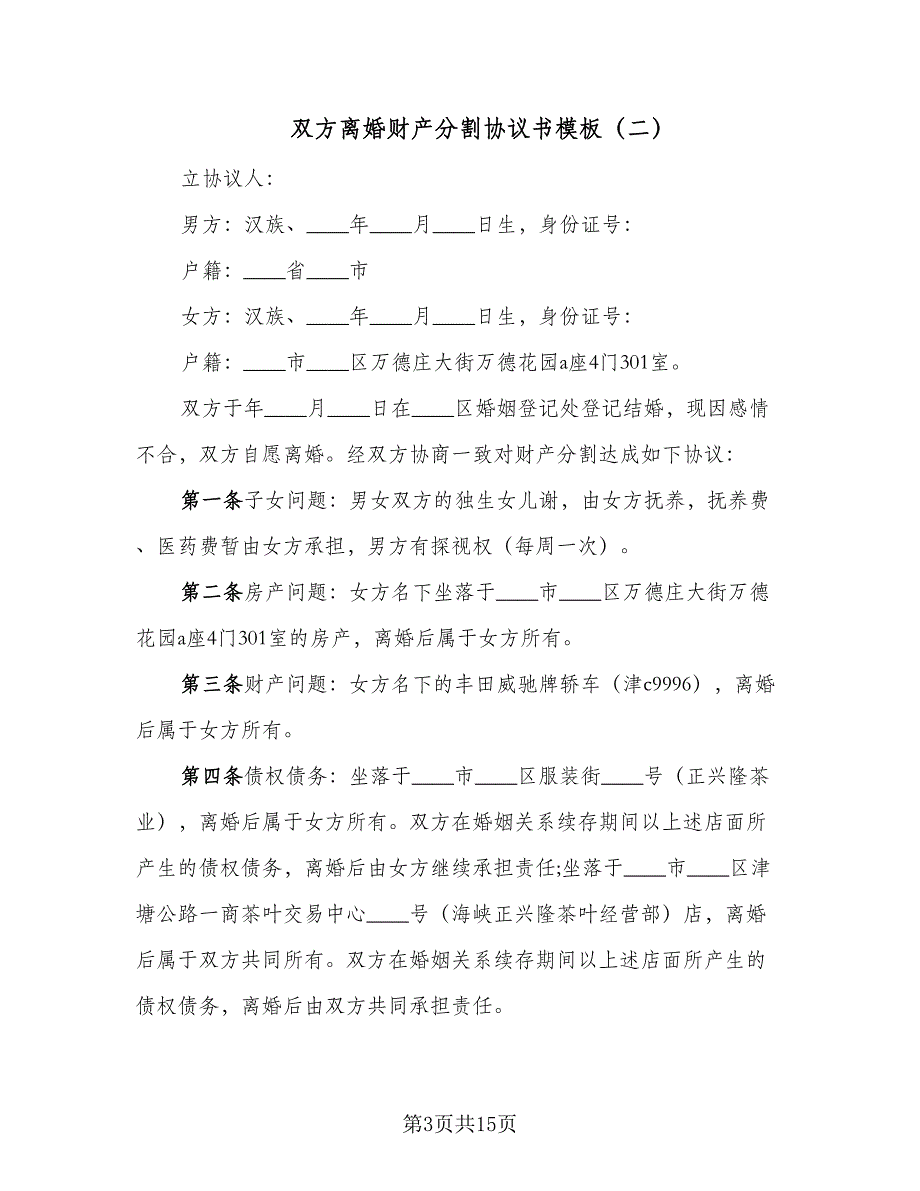 双方离婚财产分割协议书模板（二）
立协议人：
男方：汉族、____年____月____日生，身份证号：
户籍：____省____市
女方：汉族、____年____月____日生，身份证号：
户籍：____市____区万德庄大街万德花园a座4门301室。
双方于年____月____日在____区婚姻登记处登记结婚，现因感情
不合，双方自愿离婚。经双方协商一致对财产分割达成如下协议：
第一条子女问题：男女双方的独生女儿谢，由女方抚养，抚养费
、医药费暂由女方承担，男方有探视权（每周一次）。
第二条房产问题：女方名下坐落于____市____区万德庄大街万德
花园a座4门301室的房产，离婚后属于女方所有。
第三条财产问题：女方名下的丰田威驰牌轿车（津c9996），离婚
后属于女方所有。
第四条债权债务：坐落于____市____区服装街____号（正兴隆茶
业），离婚后属于女方所有。双方在婚姻关系续存期间以上述店面所
产生的债权债务，离婚后由女方继续承担责任;坐落于____市____区津
塘公路一商茶叶交易中心____号（海峡正兴隆茶叶经营部）店，离婚
后属于双方共同所有。双方在婚姻关系续存期间以上述店面所产生的
债权债务，离婚后由双方共同承担责任。
第3页共15页